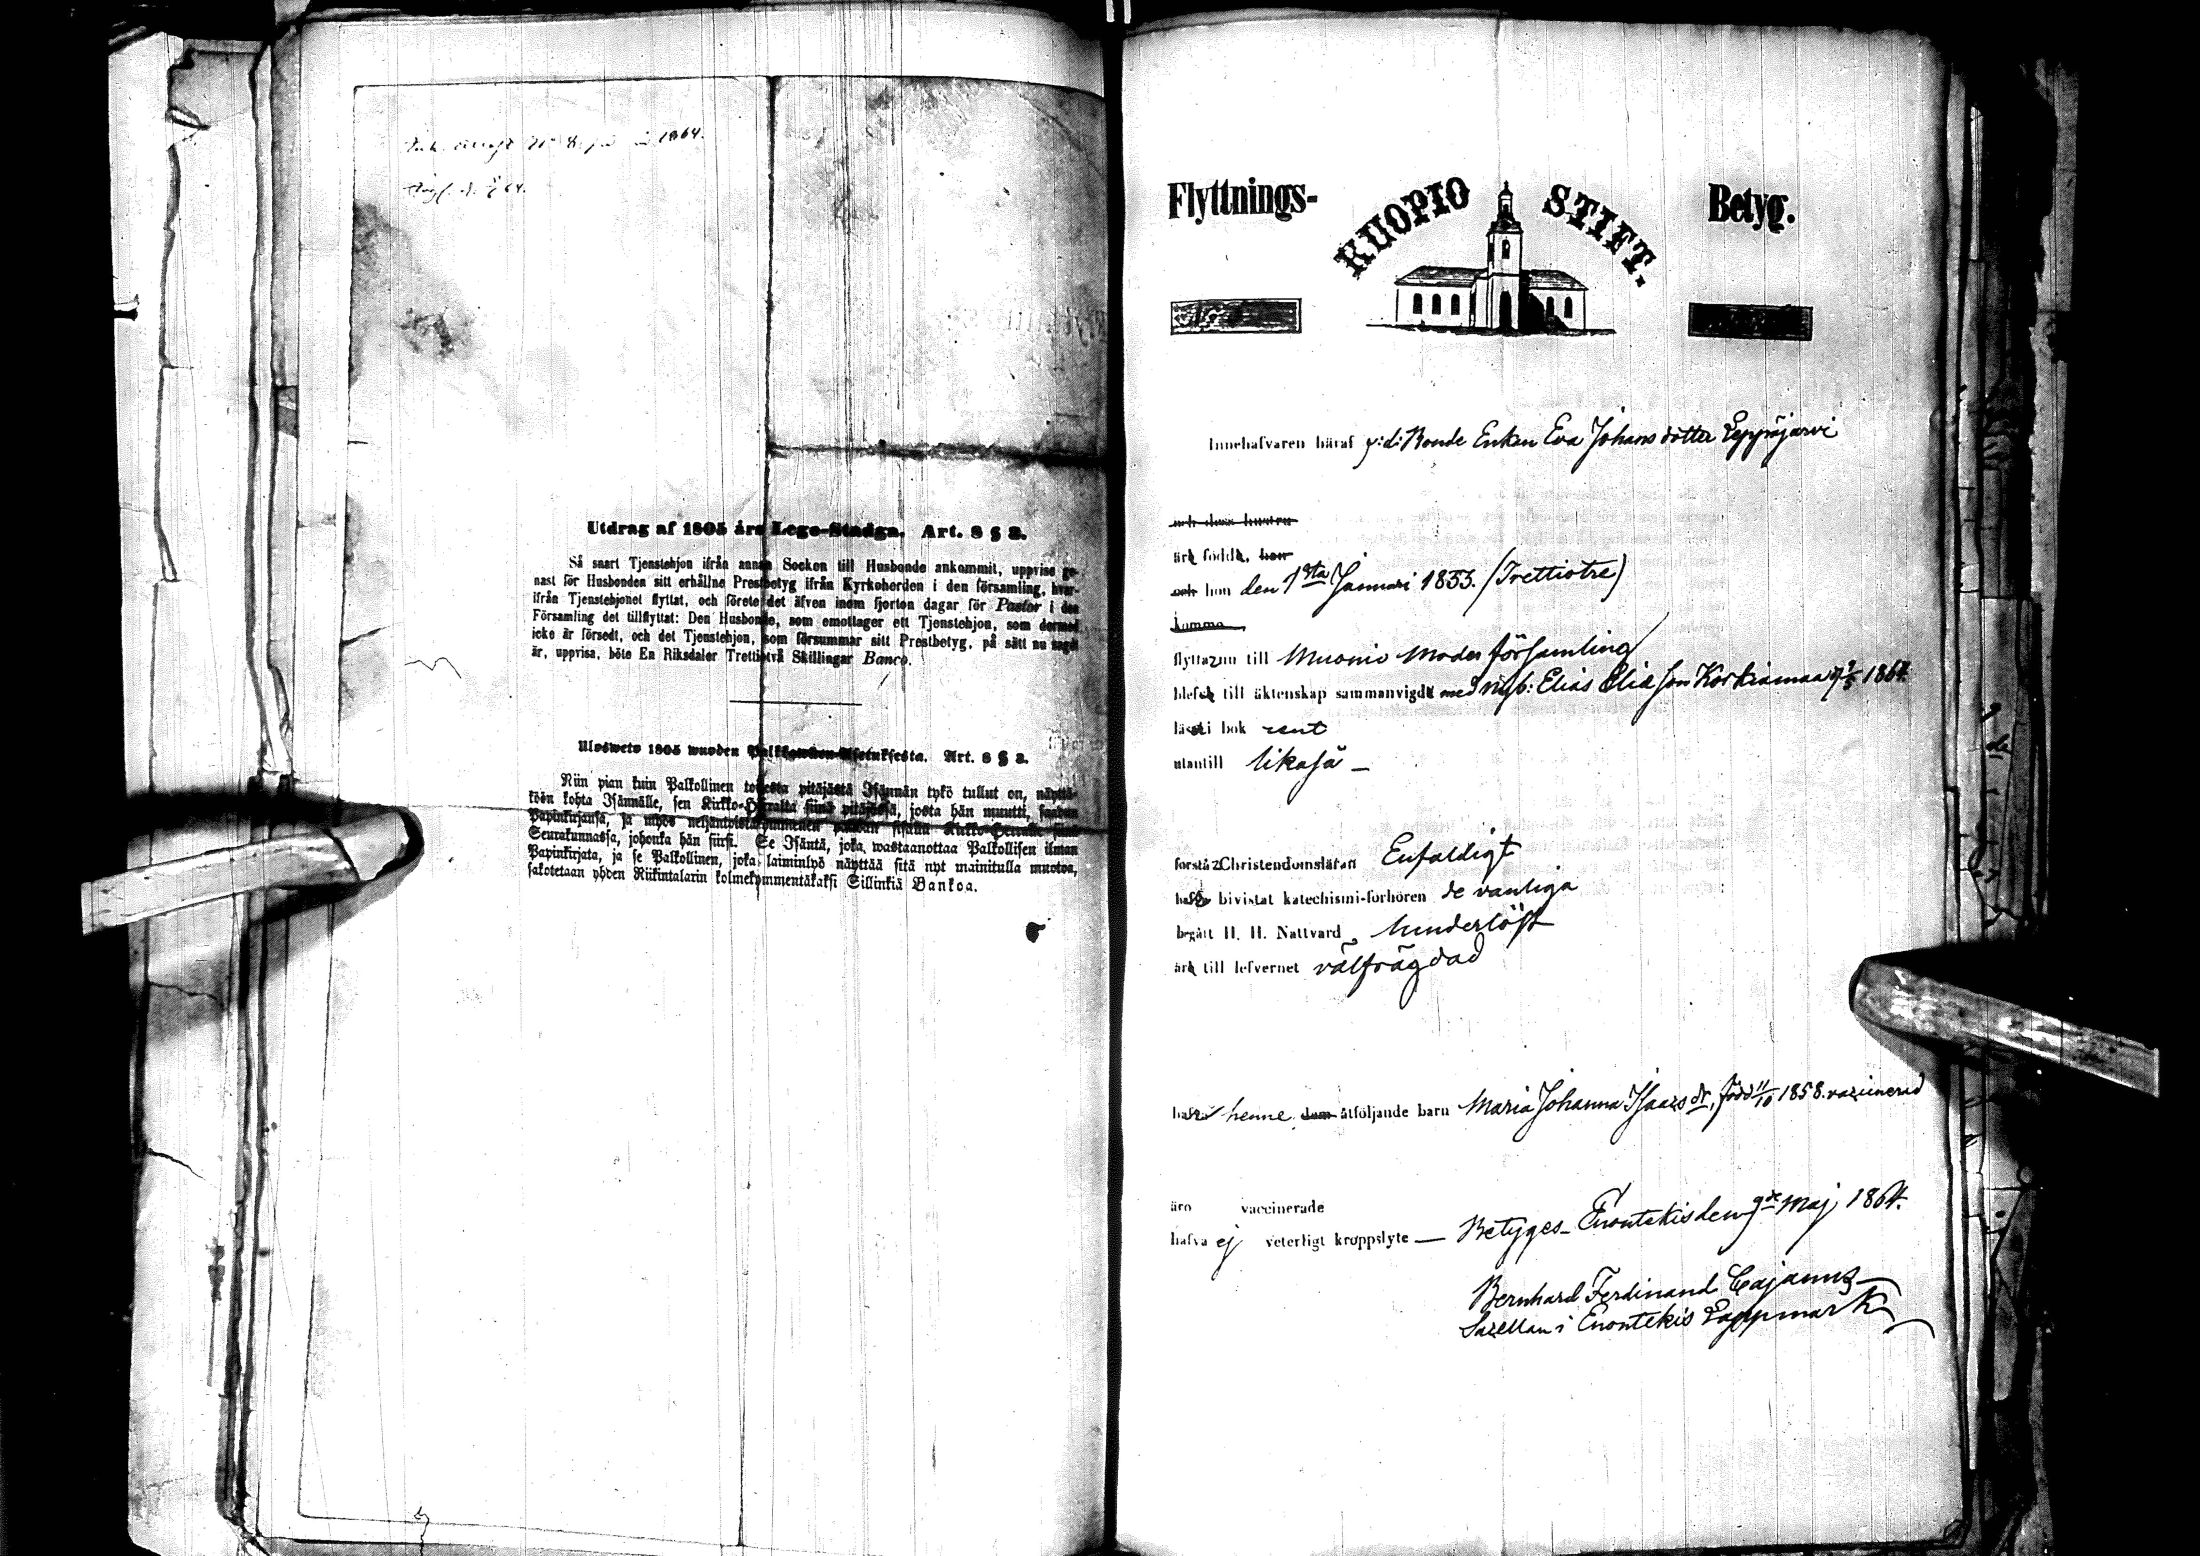 1864.
Utdrag af 1805 års Lego-Stadga. Art. 8 § 2.
Så snart Tjenstehjon ifrån annan Socken till Husbonde ankommit, uppvise ge-
nast för Husbonden sitt erhållne Prestbetyg ifrån Kyrkoherden i den församling, hvar-
ifrån Tjenstehjonet flyttat, och förete det äfven inom fjorton dagar för Pastor i den
Församling det tillflyttat: Den Husbonde, som emottager ett Tjenstehjon, som dermed
icke är försedt, och det Tjenstehjon, som försummar sitt Prestbetyg, på sätt nu sagdt
är, uppvisa, böte En Riksdaler Trettiotvå Skillingar Banco.
Ulosweto 1805 wuoden Palkkowäen-Asetuksesta. Art. 8 § 2.
Niin pian kuin Palkollinen toisesta pitäjästä Isännän tykö tullut on, näyttä-
köön kohta Isännälle, sen Kirkko-Herralta siinä pitäjässä, josta hän muutti, saadun
Papinkirjansa, ja myös neljäntoistakymmenen päiwän sisällä Kirkko-Herralle siinä
Seurakunnassa, johonka hän siirsi. Se Isäntä, joka wastaanottaa Palkollisen ilman
Papinkirjata, ja se Palkollinen, joka laiminlyö näyttää sitä nyt mainitulla muotoa,
sakotetaan yhden Riikintalarin kolmekymmentäkaksi Sillinkiä Bankoa.
Flyttnings- KUOPIO STIFT. Betyg.
Innehafvaren häraf f:d: Bonde Enkan Eva Johans dotter Leppäjärvi
och dess hustru
är född, han
och hon den 1sta Januari 1833. (Trettiotre)
komma
flytta nu till Muonio Moder församling
blef till äktenskap sammanvigd med nyb: Elias Elias son Korkiamaa 9/5 1864
läs i bok rent
utantill likaså —
förstå Christendomsläran Enfaldigt
haf bivistat katechismi-förhören de vanliga
begått H. H. Nattvard hinderlöst
är till lefvernet välfrägdad
hafva henne dem åtföljande barn Maria Johanna Isaacs dr, född 11/10 1858. vaccinerad
äro vaccinerade
hafva ej veterligt kroppslyte — Betyges Enontekis den 9de Maj 1864.
Bernhard Ferdinand Cajanus
Sacellan i Enontekis Lappmark